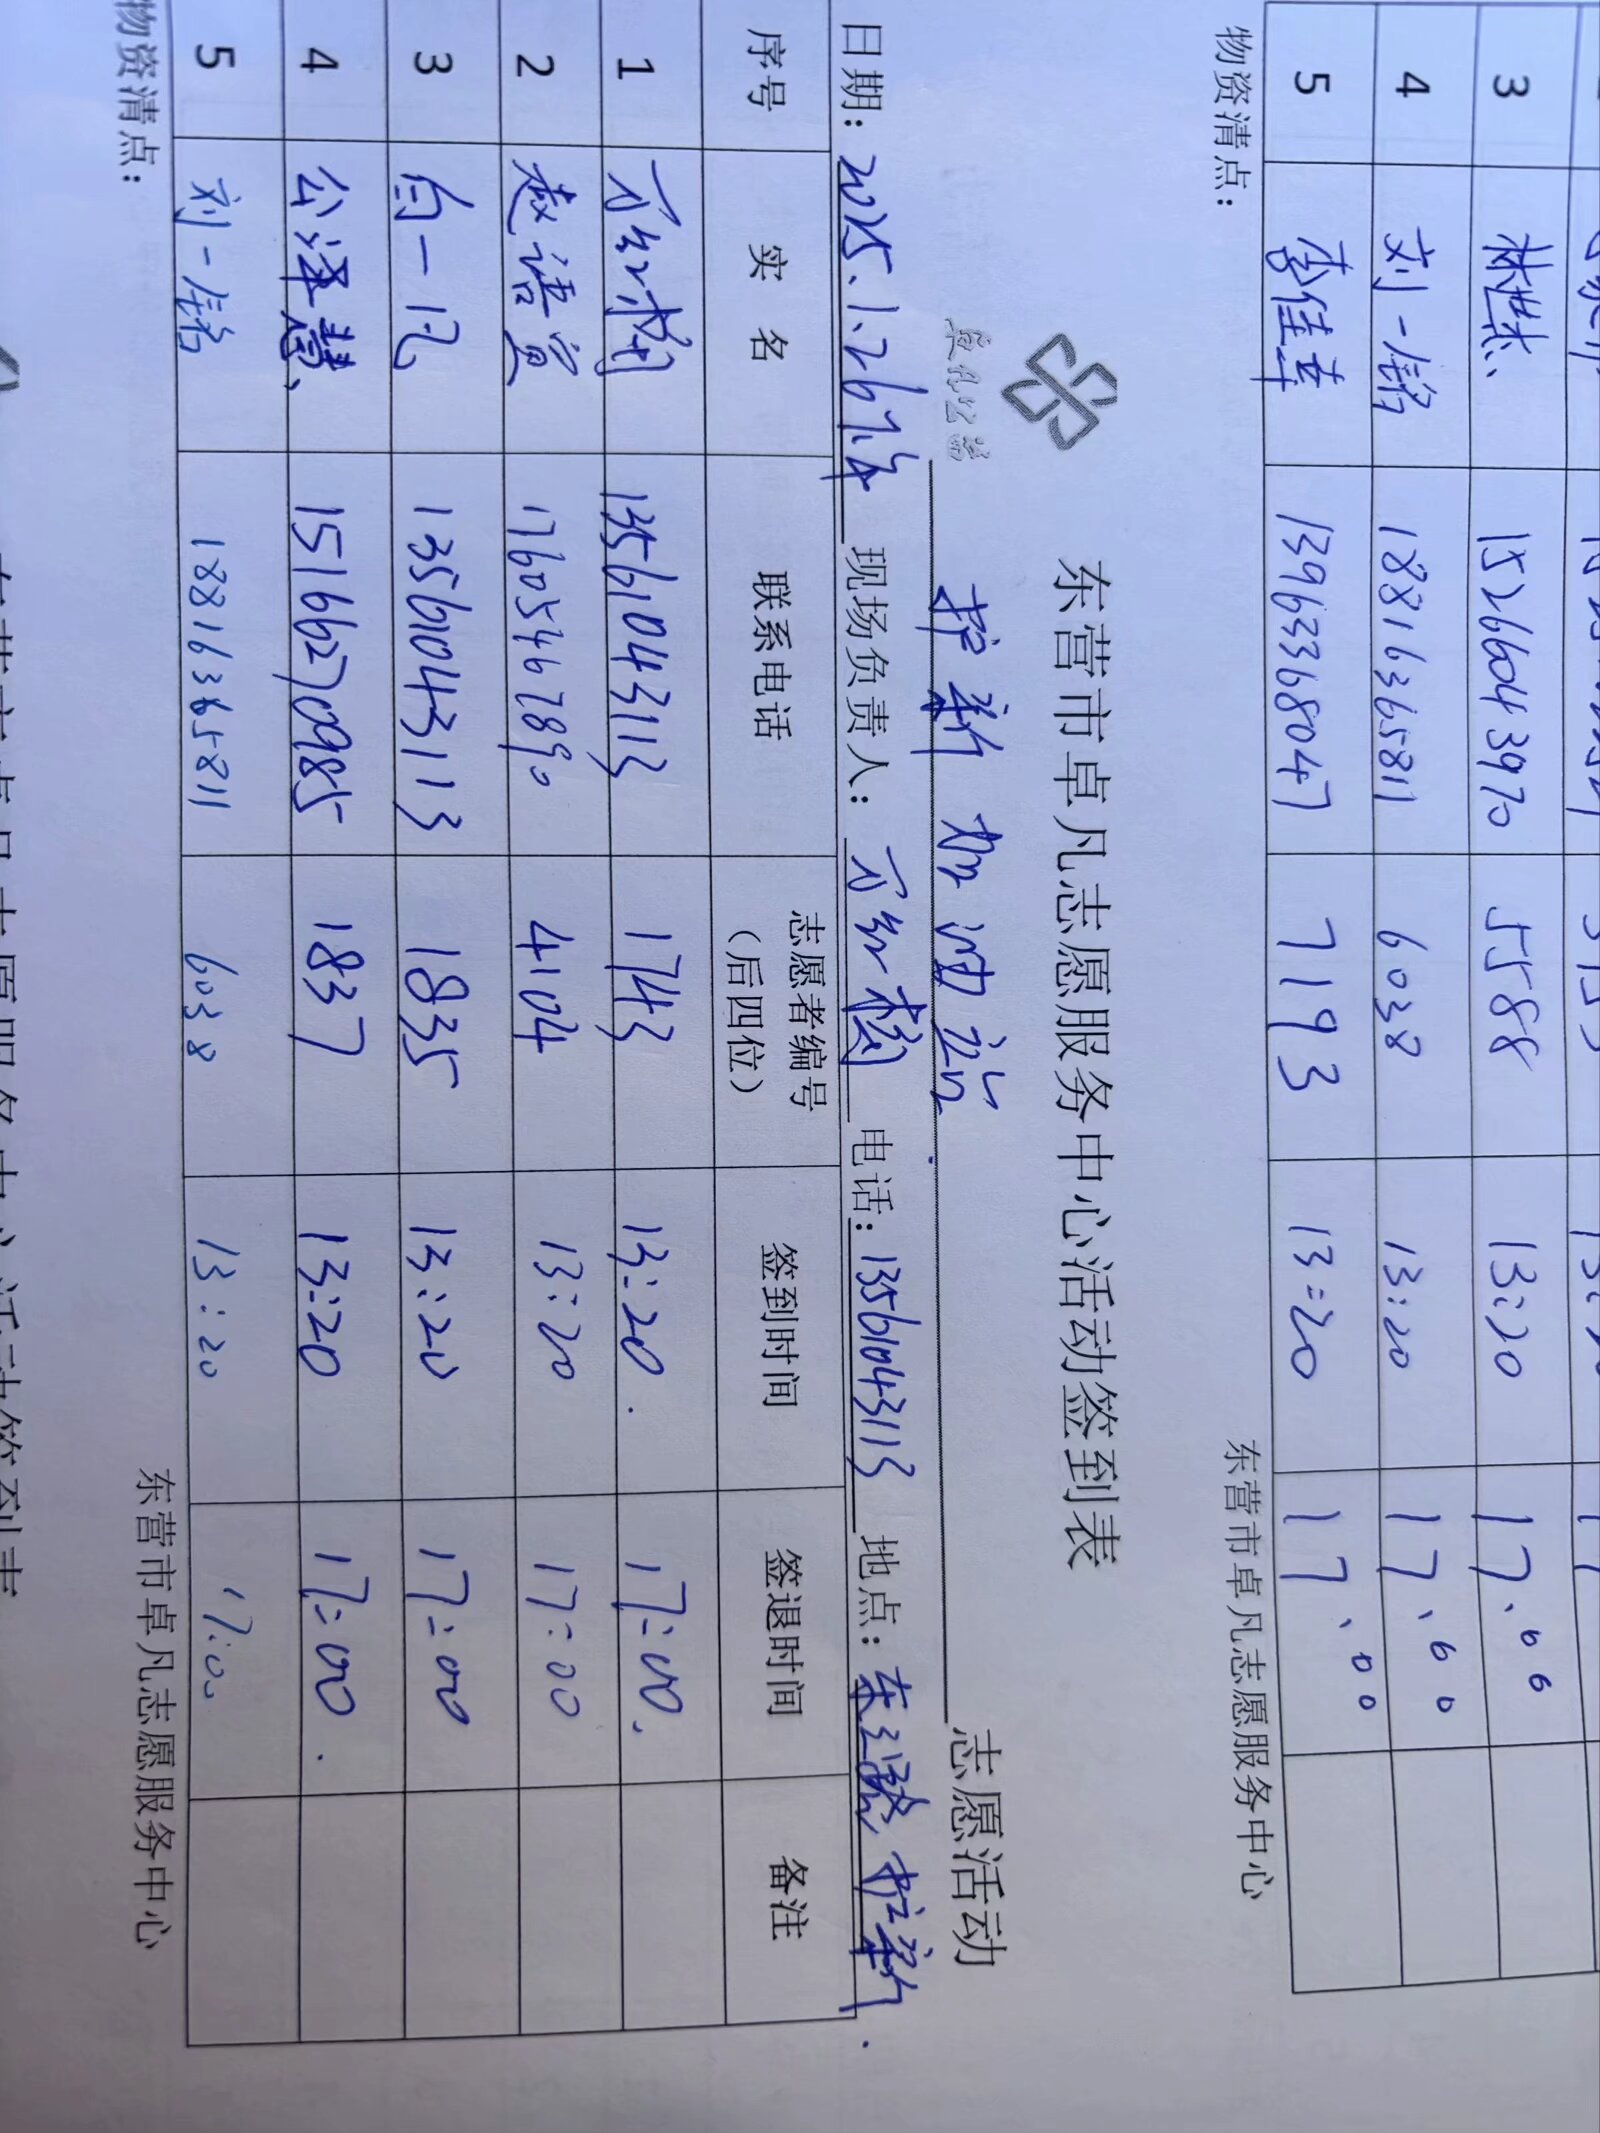 3 林世杰 15266043970 5588 13:20 17:00
4 刘一铭 18816365811 6038 13:20 17:00
5 李佳卉 13963368047 7193 13:20 17:00
物资清点： 东营市卓凡志愿服务中心
东营市卓凡志愿服务中心活动签到表
卓凡公益
加油站 志愿活动
日期：2025.1.26 下午 现场负责人： 电话：13561043113 地点：东三路
序号 实 名 联系电话 志愿者编号（后四位） 签到时间 签退时间 备注
1 13561043113 1743 13:20 17:00
2 17605467890 4104 13:20 17:00
3 白一凡 13561043113 1835 13:20 17:00
4 公泽慧 15166270985 1837 13:20 17:00
5 刘一铭 18816365811 6038 13:20 17:00
物资清点： 东营市卓凡志愿服务中心